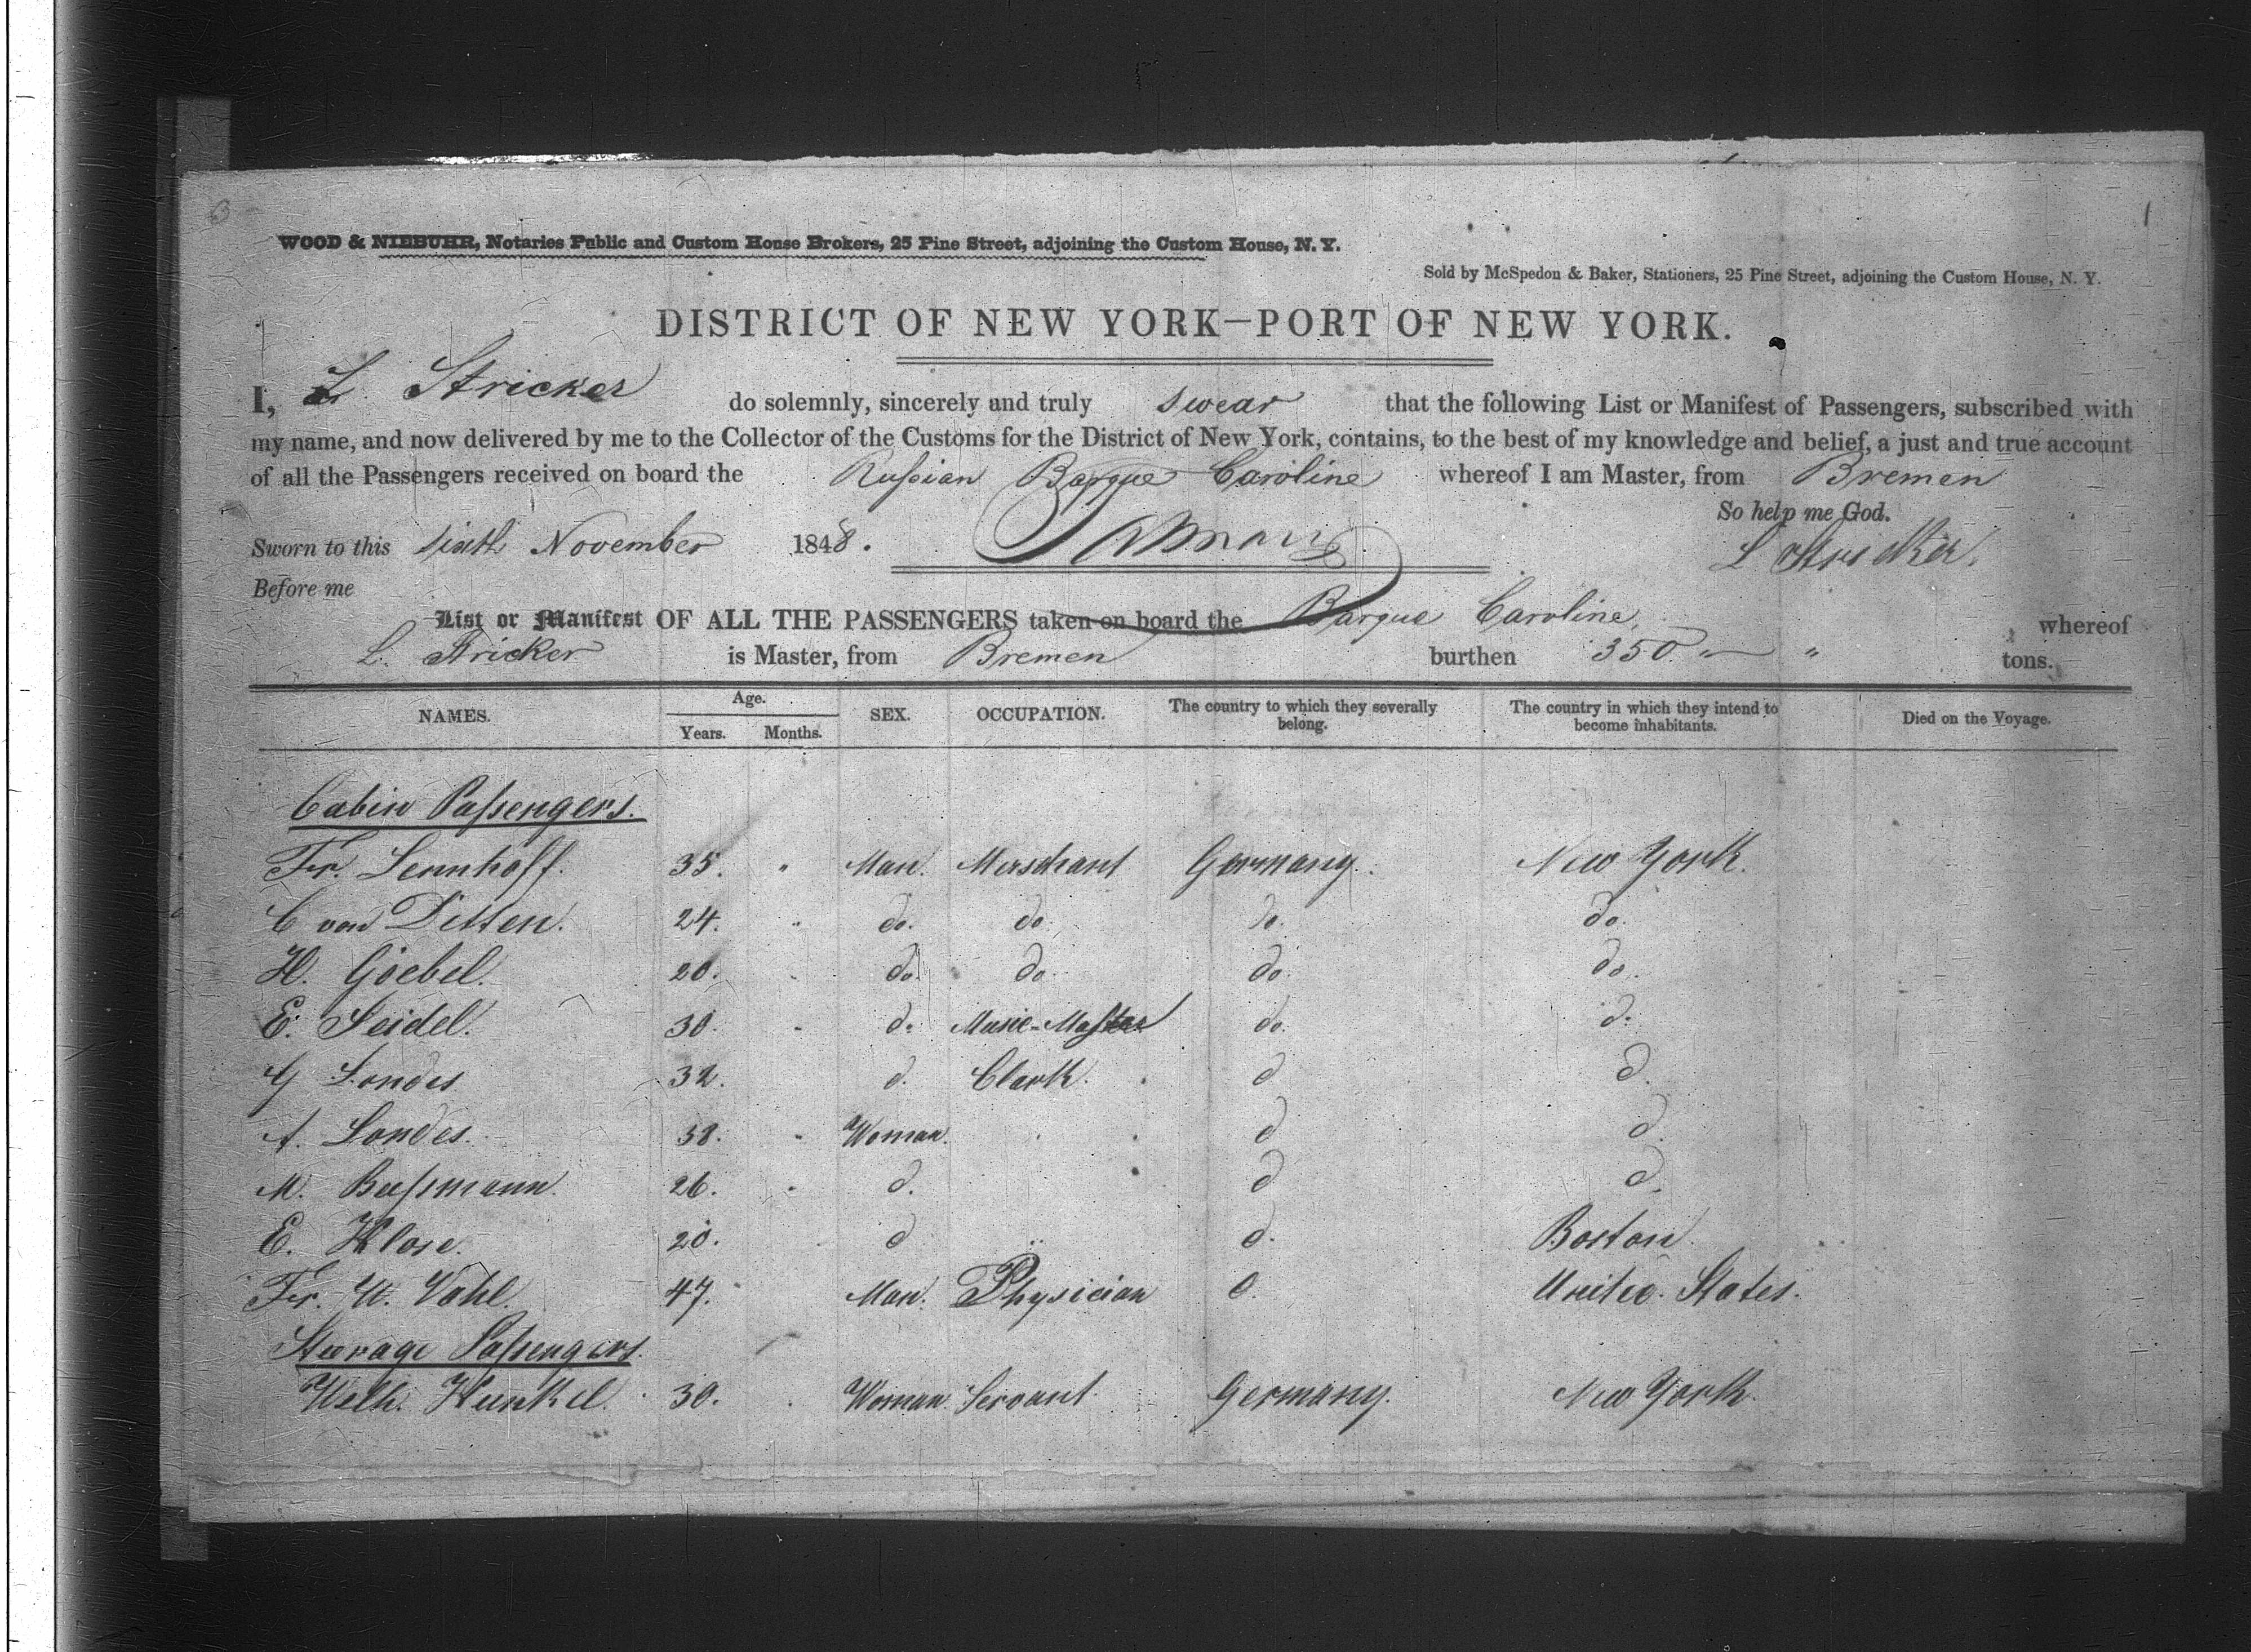 WOOD & NIEBUHR, Notaries Public and Custom House Brokers, 25 Pine Street, adjoining the Custom House, N. Y.
Sold by McSpedon & Baker, Stationers, 25 Pine Street, adjoining the Custom House, N. Y.
DISTRICT OF NEW YORK—PORT OF NEW YORK.
I, L. Stricker do solemnly, sincerely and truly swear that the following List or Manifest of Passengers, subscribed with
my name, and now delivered by me to the Collector of the Customs for the District of New York, contains, to the best of my knowledge and belief, a just and true account
of all the Passengers received on board the Russian Barque Caroline whereof I am Master, from Bremen
So help me God.
Sworn to this sixth November 1848. L Stricker.
Before me
List or Manifest OF ALL THE PASSENGERS taken on board the Barque Caroline, whereof
L. Stricker is Master, from Bremen burthen 350. " " tons.
NAMES. Age. Years. Months. SEX. OCCUPATION. The country to which they severally belong. The country in which they intend to become inhabitants. Died on the Voyage.
Cabin Passengers.
Fr. Lennhoff. 35. " Man. Merschant Germany. New York.
C von Ditten. 24. " do. do. do. do.
H. Goebel. 20. " do. do. do. do.
E. Seidel. 30. " d. Music-Master do. d.
G Landes 32. d. Clark. d d.
A. Landes. 38. " Woman. d d.
M. Bussmann. 26. " d. d d.
E. Klose. 20. d d. Boston.
Fr. W. Vahl. 47. " Man. Physician d. United States.
Steerage Passengers.
Welh. Kunkel. 30. Woman Servant. Germany. New York.